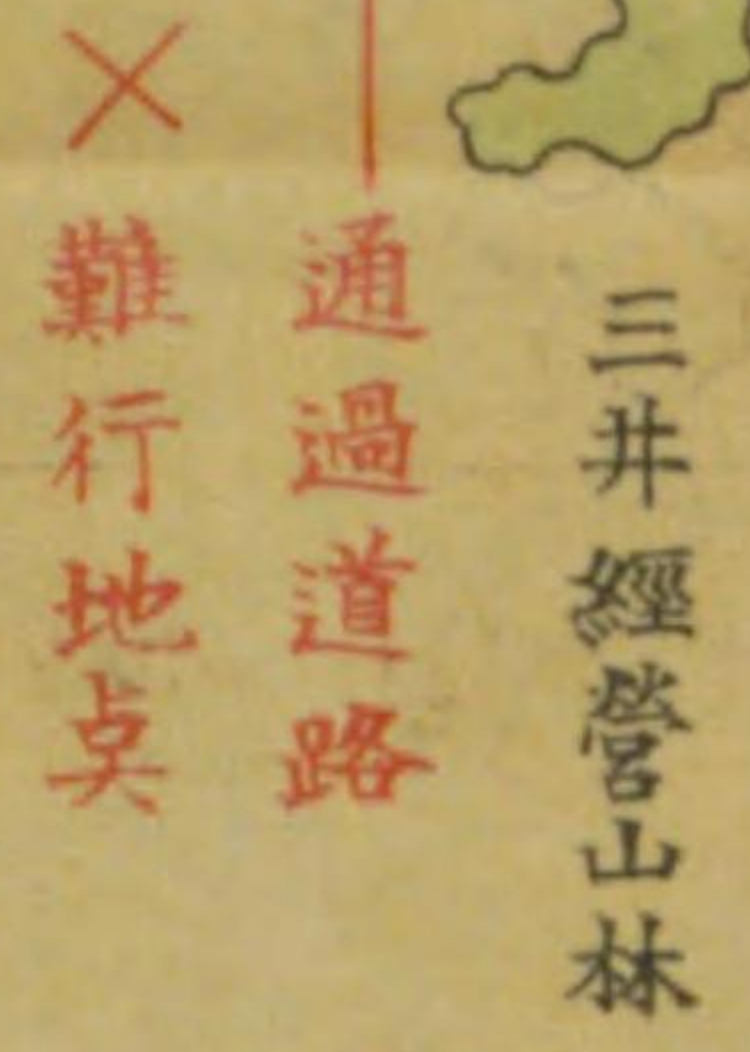 三井經營山林
通過道路
難行地奌